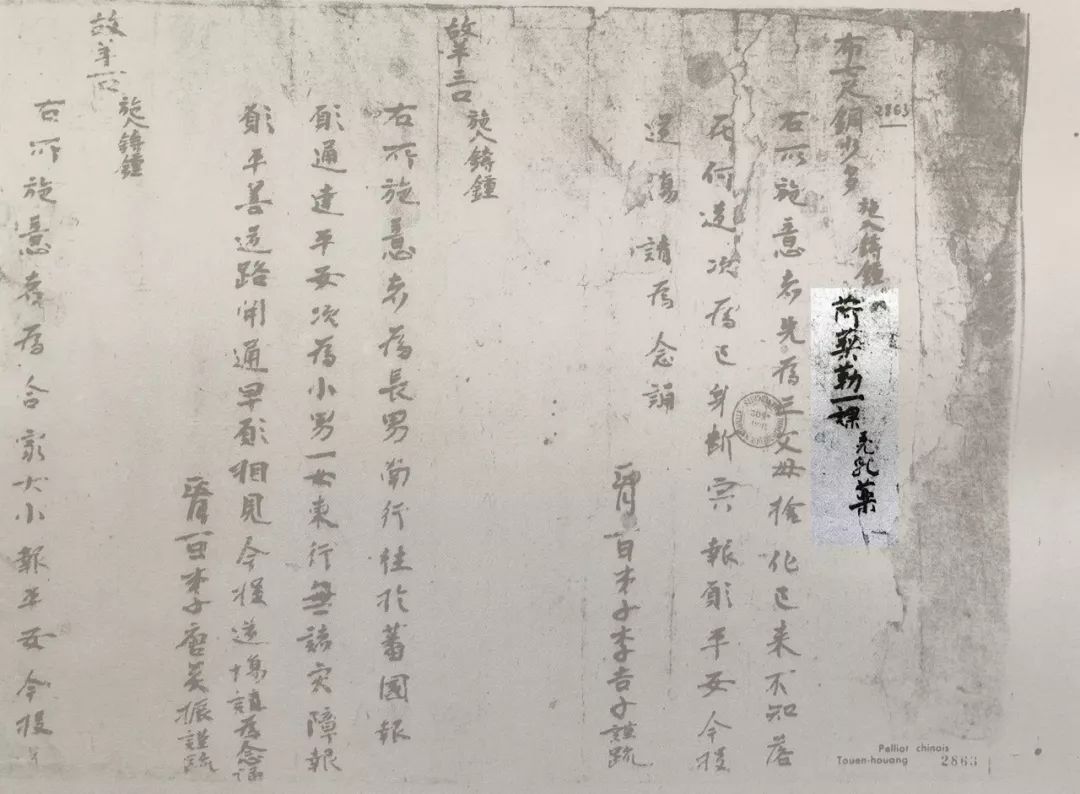 布一尺銅少多 施入鑄鍾 荷藥勒一課 充乳藥
右所施意者先爲三父母捨化已来不知落
在何道次爲已身断宍報願平安今投
道場請爲念誦
正月一日弟子李吉子謹疏
羊三口 施入鑄鍾
右所施意者爲長男南行往於蕃國報
願通達平安次爲小男一女東行無諸灾障報
願平善道路開通早願相見今投道場請爲念誦
正月一日弟子唐英振謹疏
羊一口 施入鑄鍾
右所施意者爲合家大小報平安今投
2863
Pelliot chinois
Touen-houang 2863